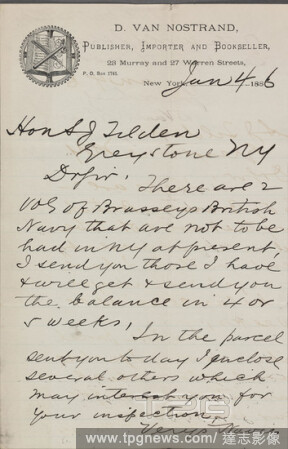 D. VAN NOSTRAND,
PUBLISHER, IMPORTER AND BOOKSELLER,
23 Murray and 27 Warren Streets,
P. O. Box 1785
New York, Jan 4 1886
Hon S J Tilden
Greystone NY
Dr Sir
There are 2
vols of Brasseys British
Navy that are not to be
had in NY at present,
I send you those I have
& will get & send you
the balance in 4 or
5 weeks,
In the parcel
sent you to day I enclose
several others which
may interest you for
your inspection
www.tpgnews.com / 達志影像